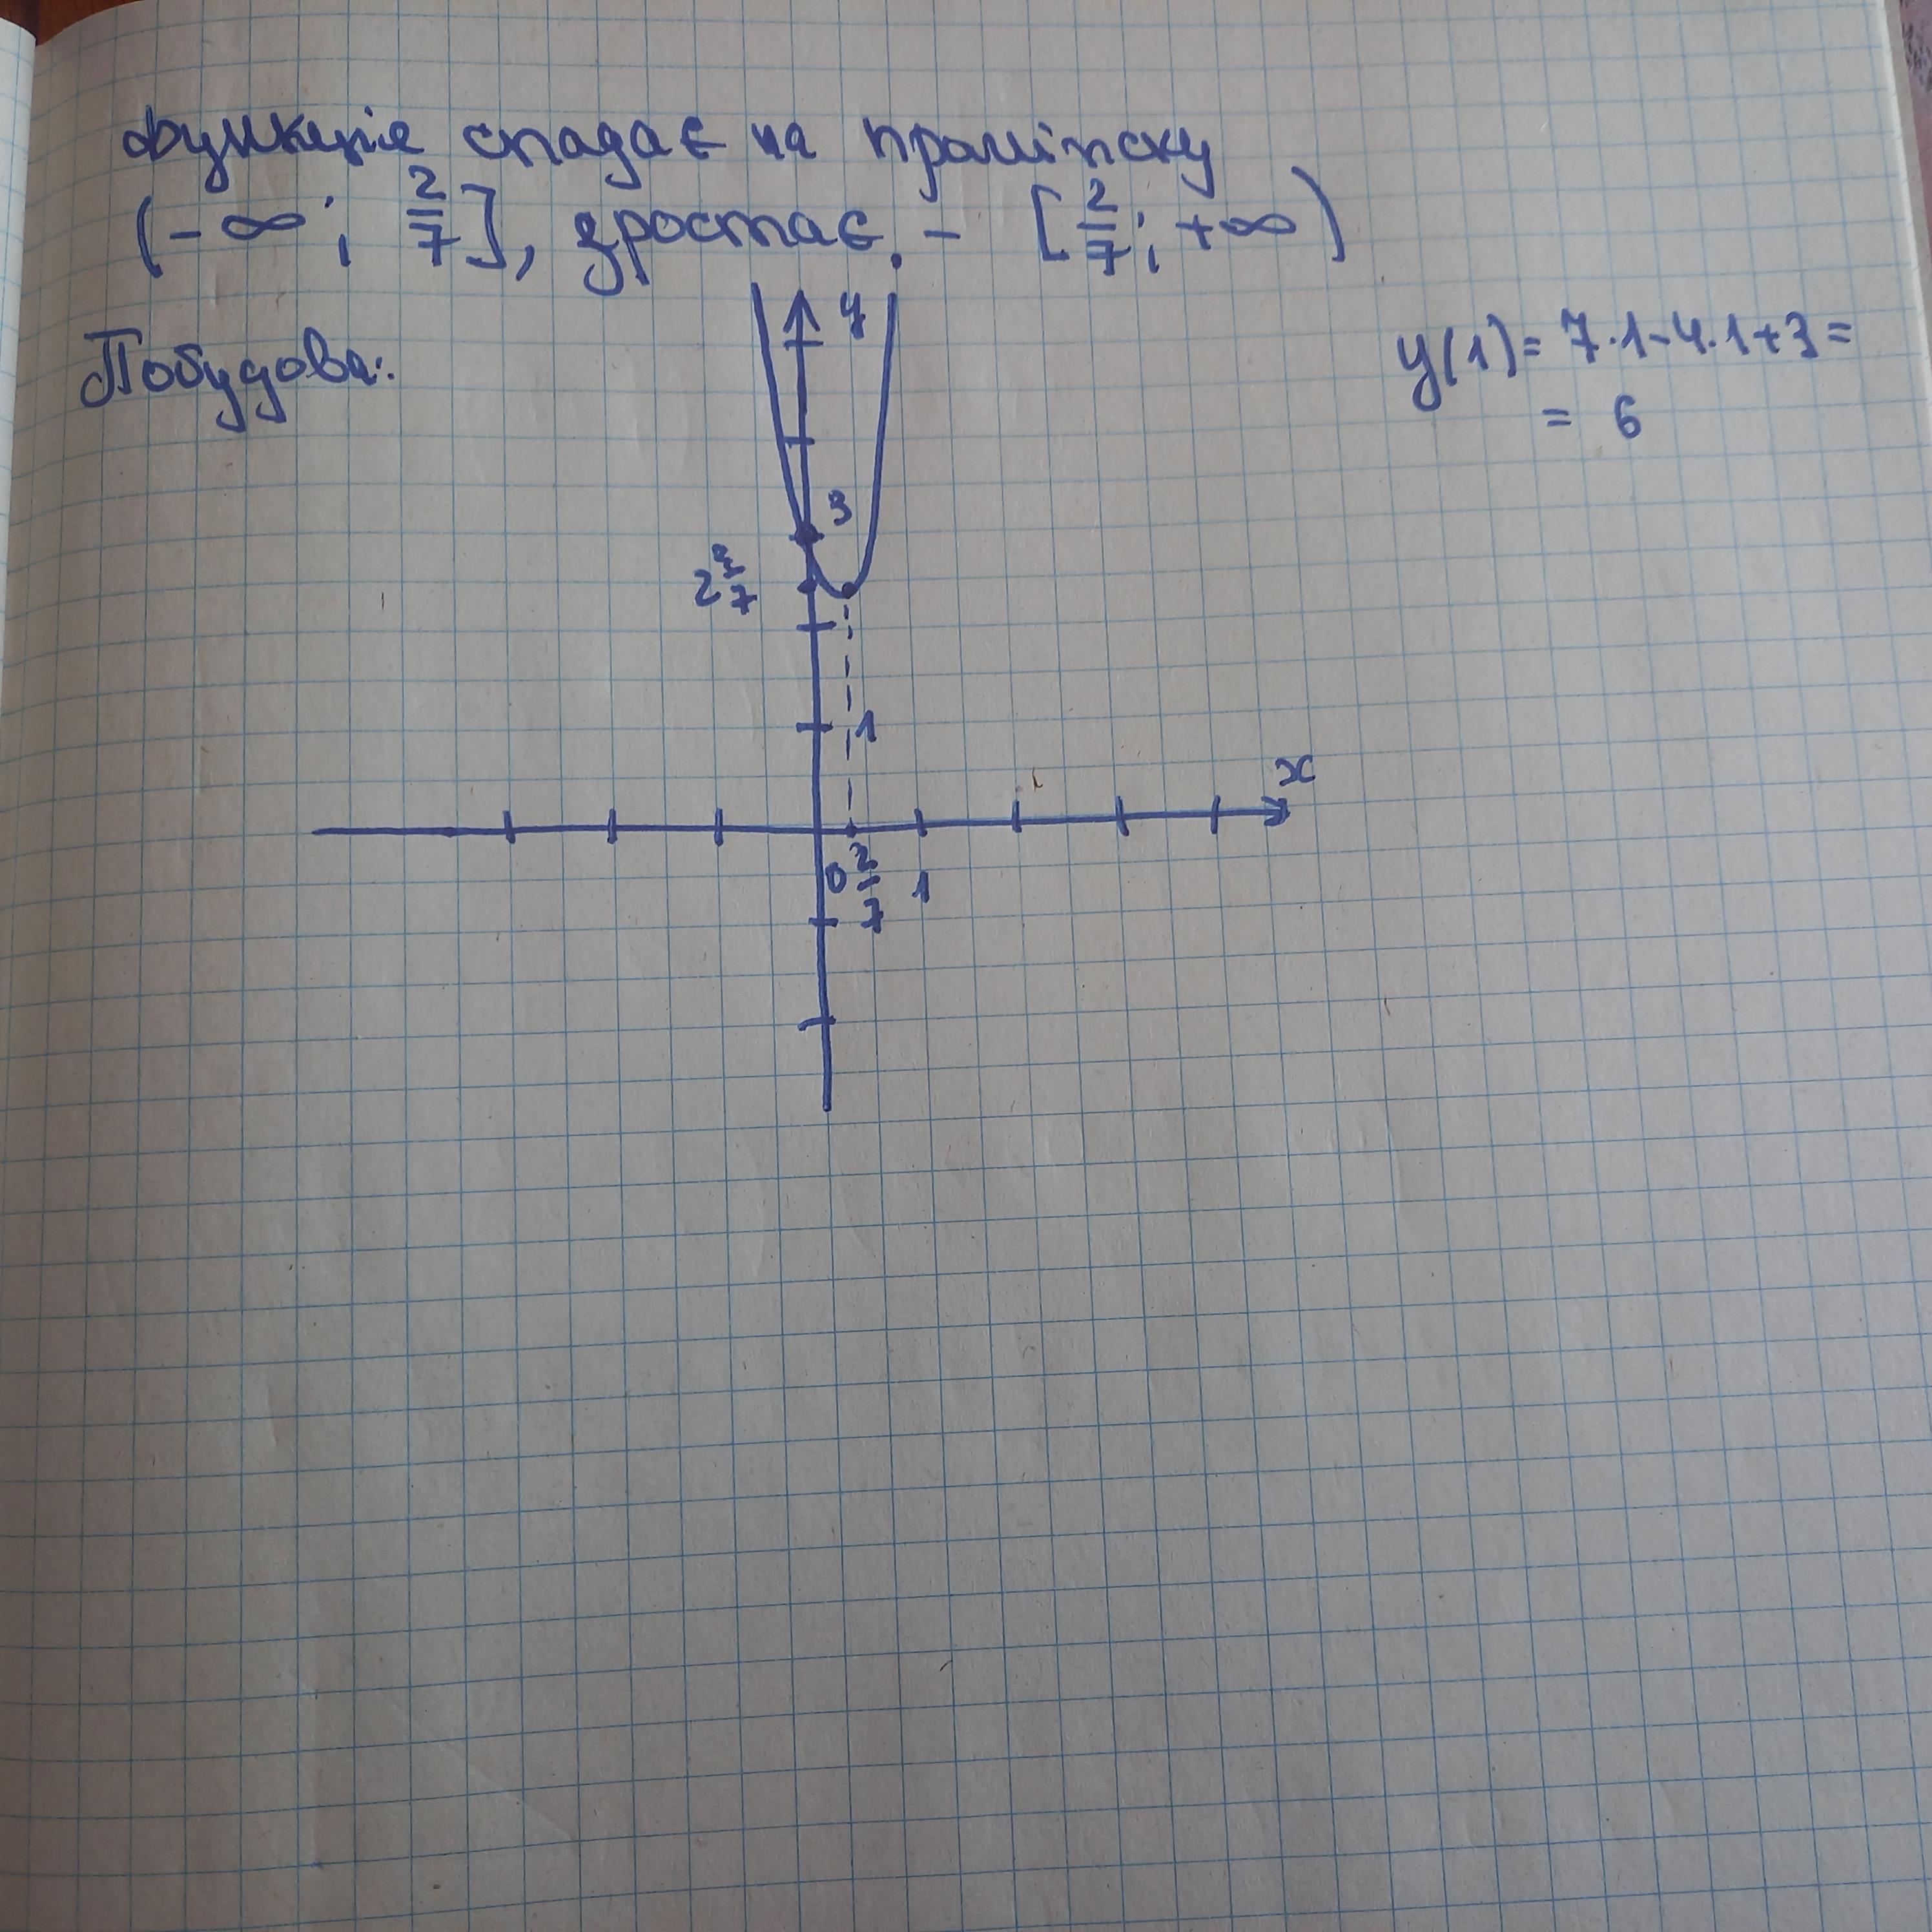 Функція спадає на проміжку
(-∞; 2/7], зростає - [2/7; +∞)
Побудова:
y
y(1)= 7·1-4·1+3=
= 6
3
2 3/7
1
x
0 2/7 1